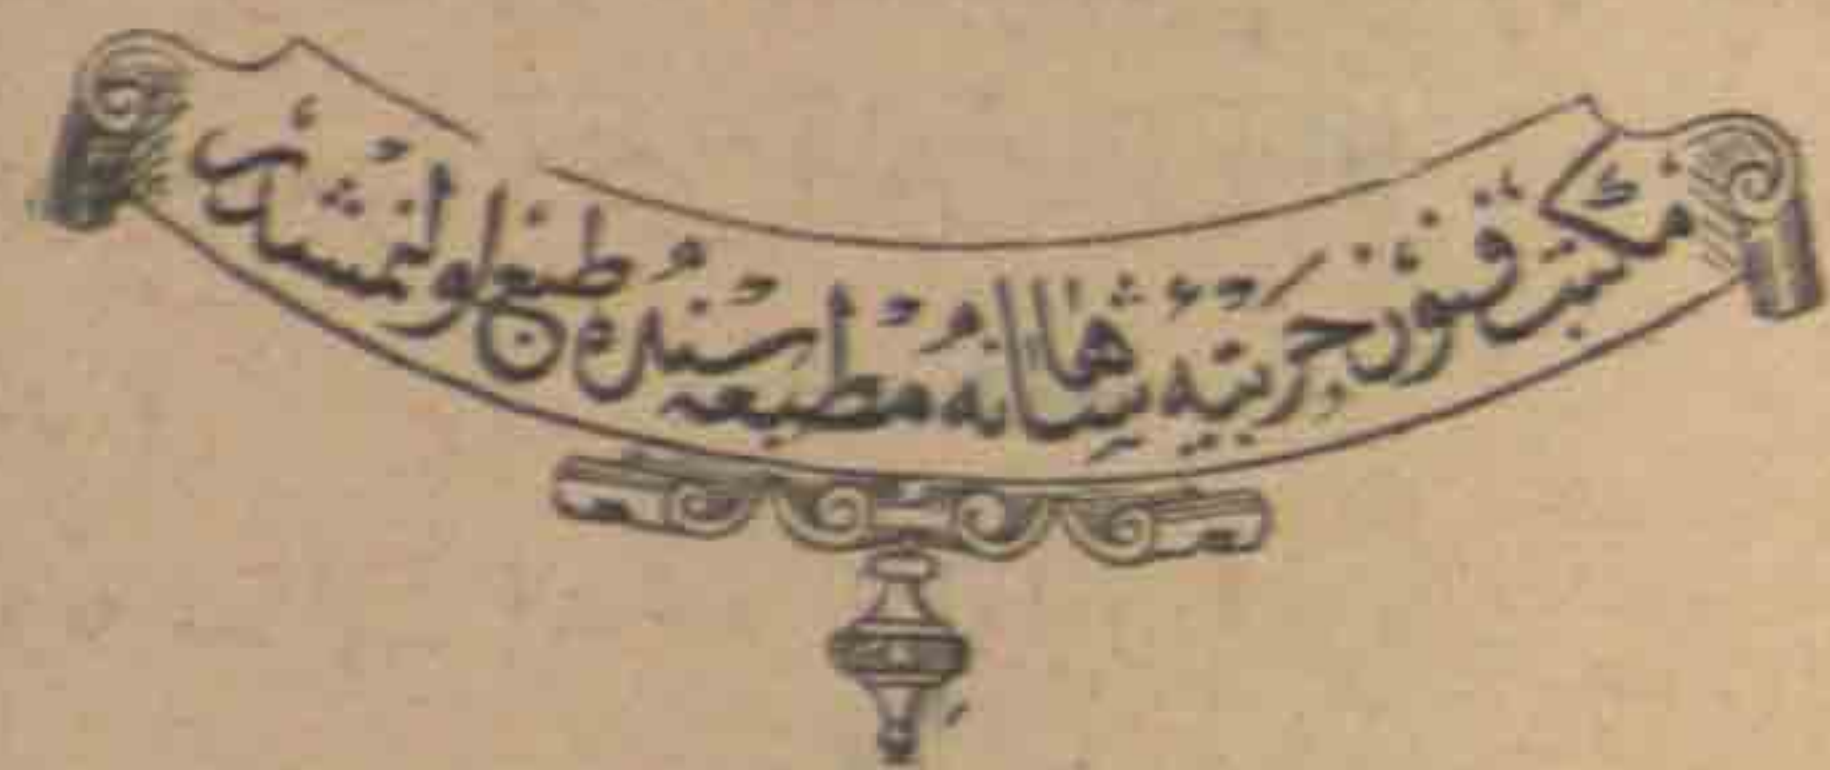 مكتب فنون حربیهٔ شاهانه مطبعه سنده طبع اولنمشدر